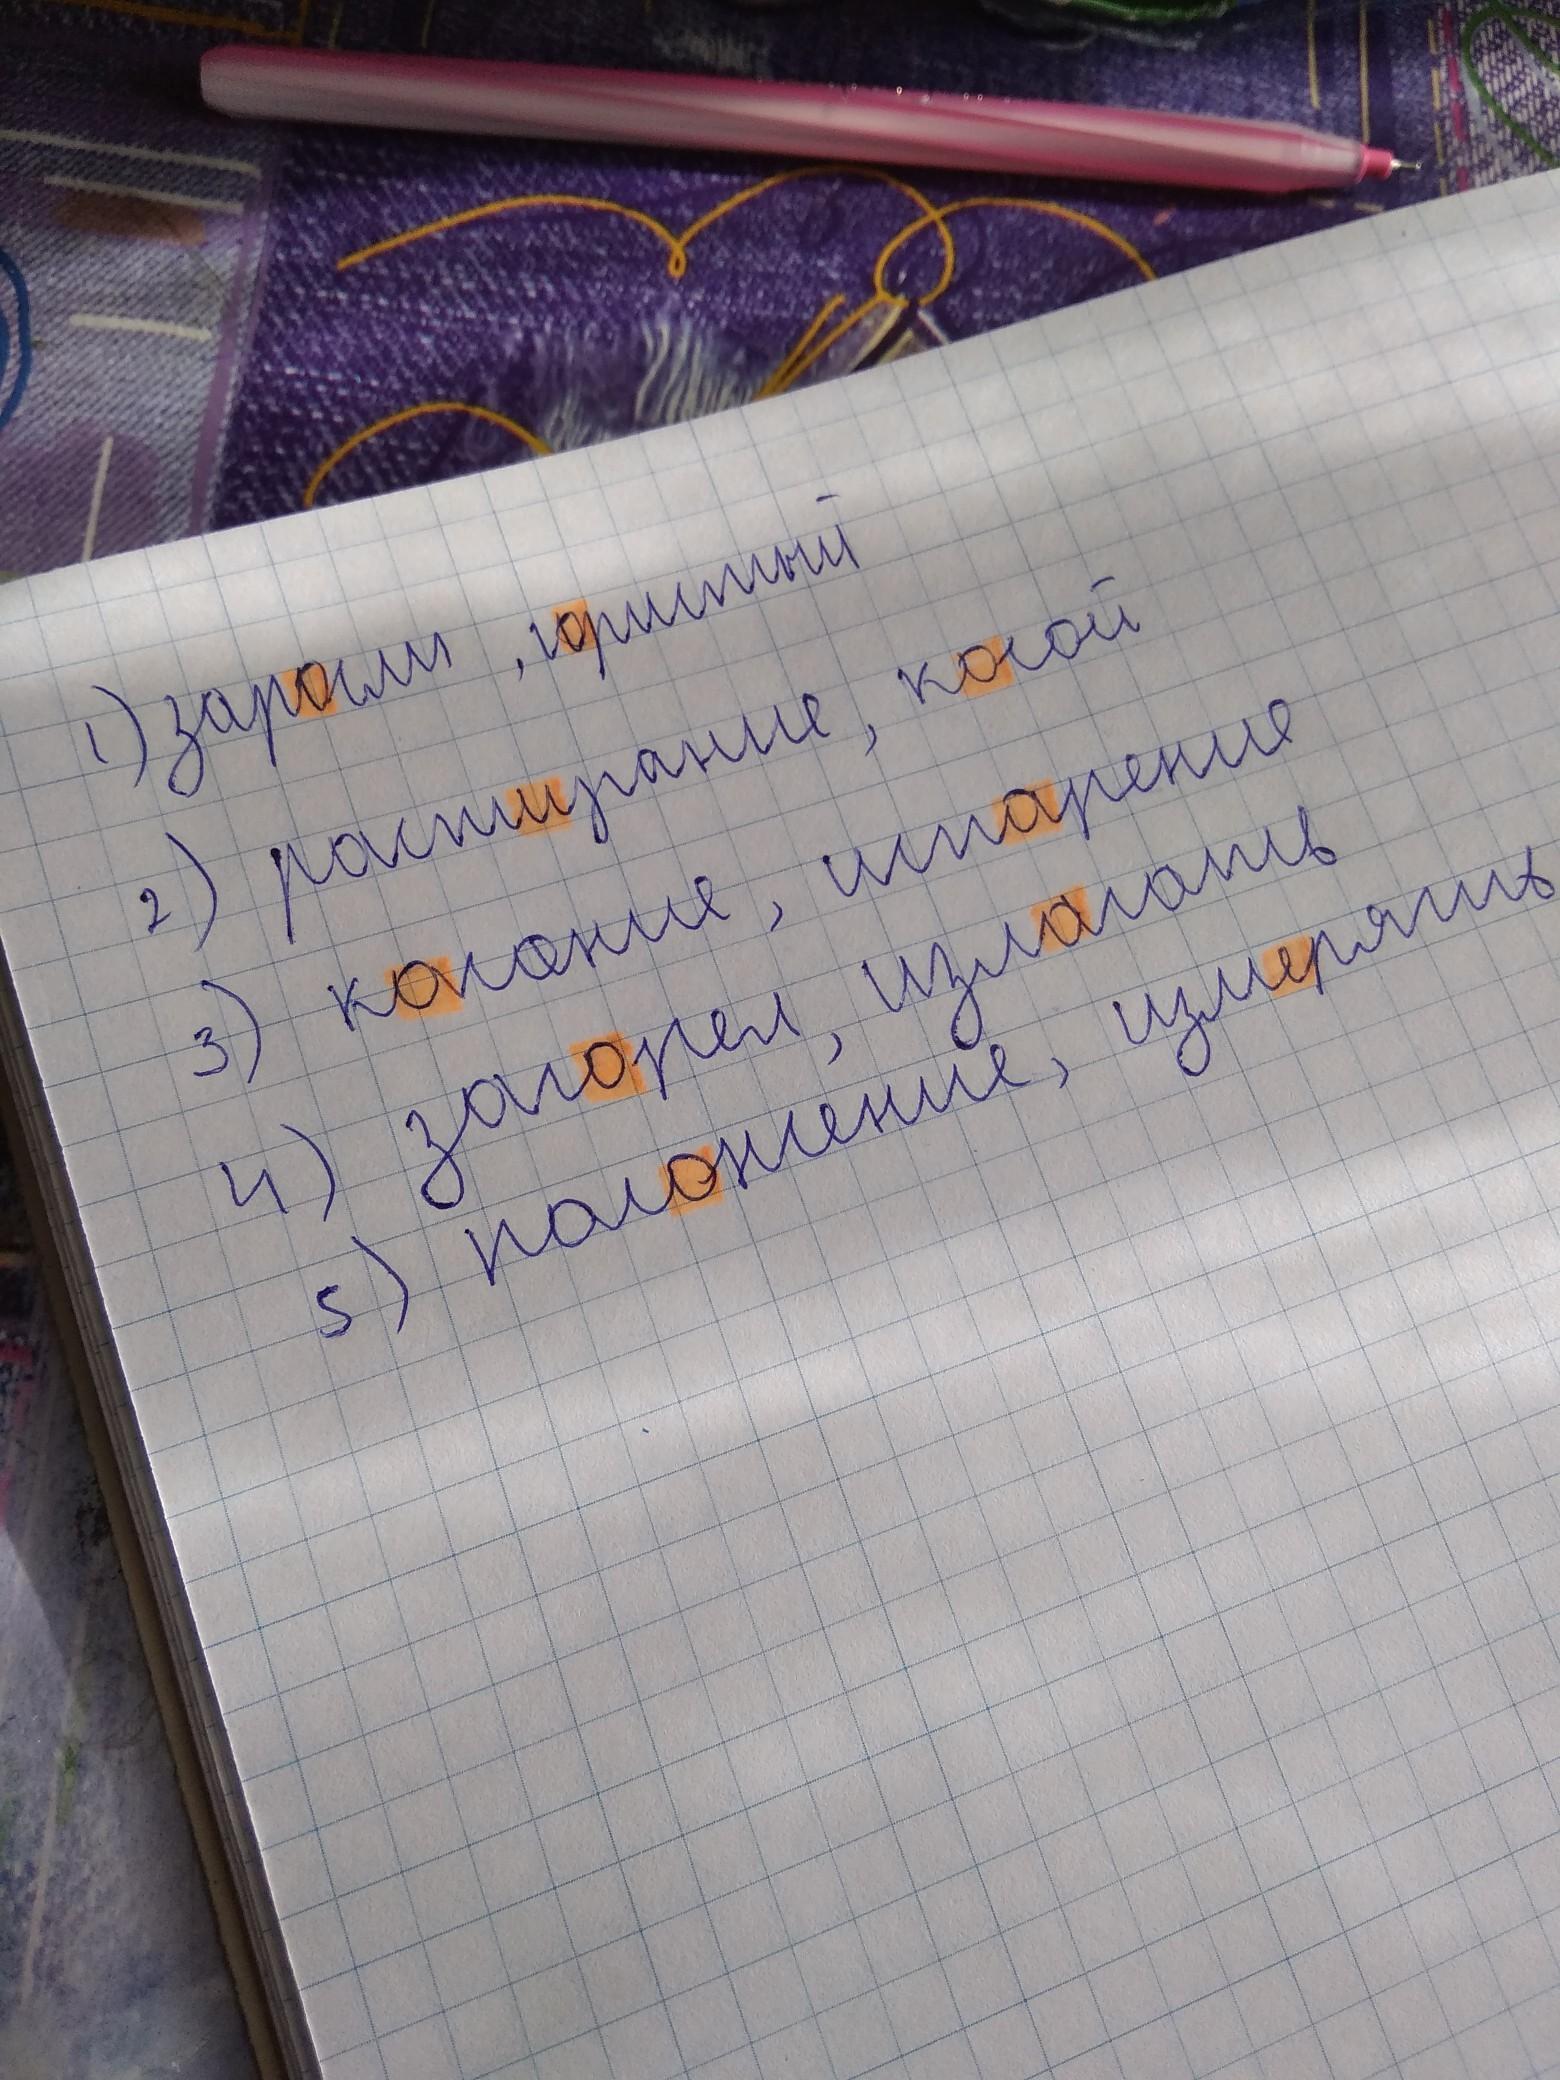 1) заросли, гористый
2) растирание, косой
3) касание, испарение
4) загорел, излагать
5) положение, измерять